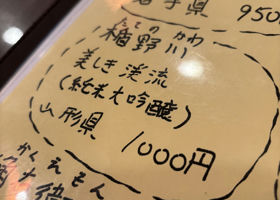 岩手県 950
たての かわ
楯野川
美しき渓流
(純米大吟醸)
山形県 1000円
かくえもん